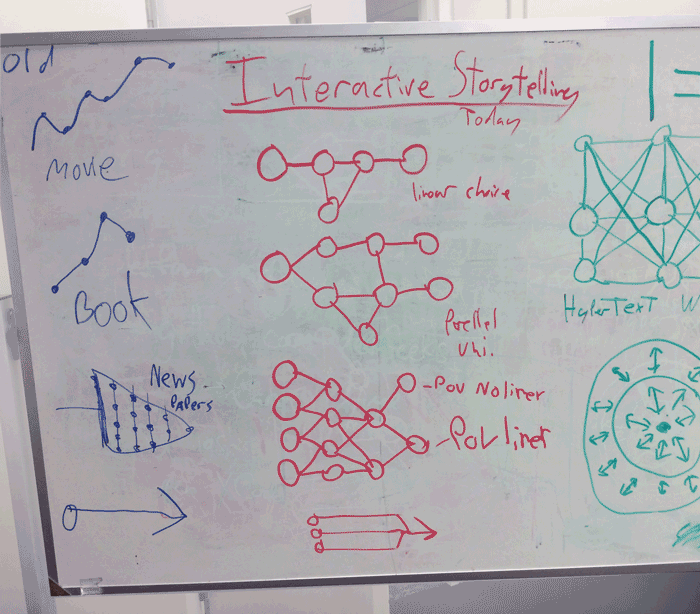 Old
Movie
Book
News
Papers
Interactive Storytelling
Today
linear choice
Parllel
Uni.
-Pov Noliner
-Pov liner
HyperText W